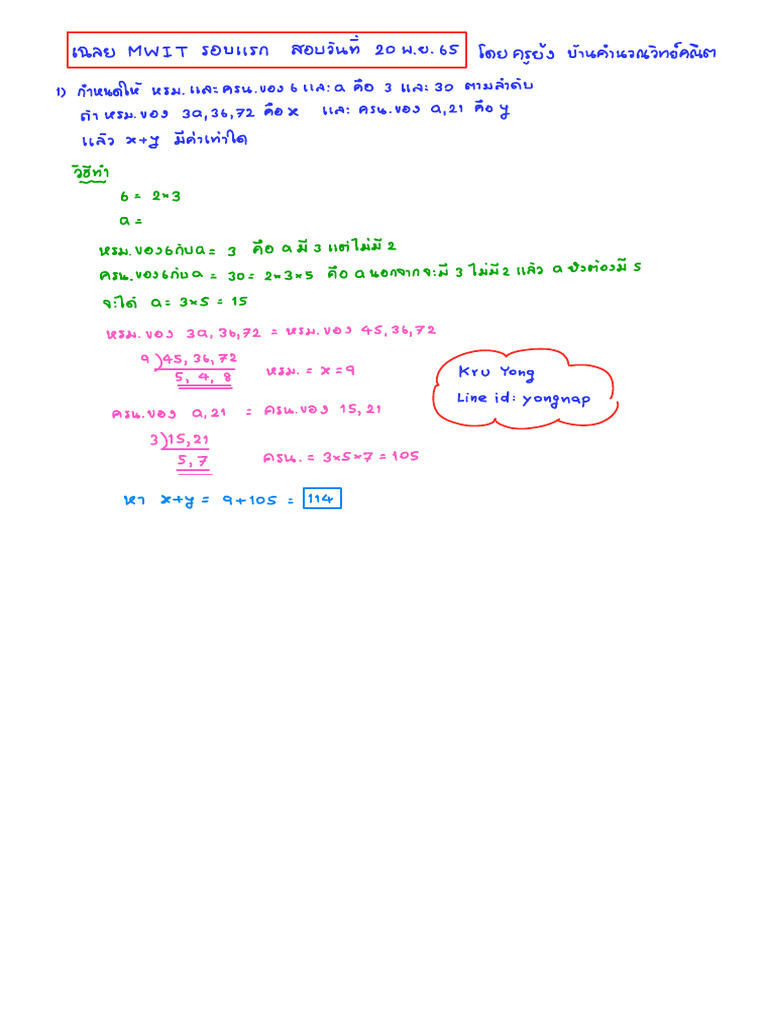 เฉลย MWIT รอบแรก สอบวันที่ 20 พ.ย. 65 โดย ครูย้ง บ้านคำนวณวิทย์คณิต
1) กำหนดให้ หรม. และ ครน. ของ 6 และ a คือ 3 และ 30 ตามลำดับ
ถ้า หรม. ของ 3a, 36, 72 คือ x และ ครน. ของ a, 21 คือ y
แล้ว x+y มีค่าเท่าใด
วิธีทำ
6 = 2×3
a =
หรม. ของ 6 กับ a = 3 คือ a มี 3 แต่ไม่มี 2
ครน. ของ 6 กับ a = 30 = 2×3×5 คือ a นอกจากจะมี 3 ไม่มี 2 แล้ว a ยังต้องมี 5
จะได้ a = 3×5 = 15
หรม. ของ 3a, 36, 72 = หรม. ของ 45, 36, 72
9 ) 45, 36, 72
5, 4, 8 หรม. = x = 9
Kru Yong
Line id: yongnap
ครน. ของ a, 21 = ครน. ของ 15, 21
3 ) 15, 21
5, 7 ครน. = 3×5×7 = 105
หา x+y = 9+105 = 114